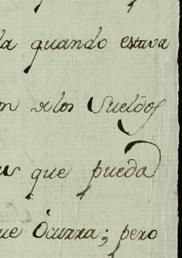 la quando estava
n de los Sueldos
us que pueda
ue Ocurra; pero